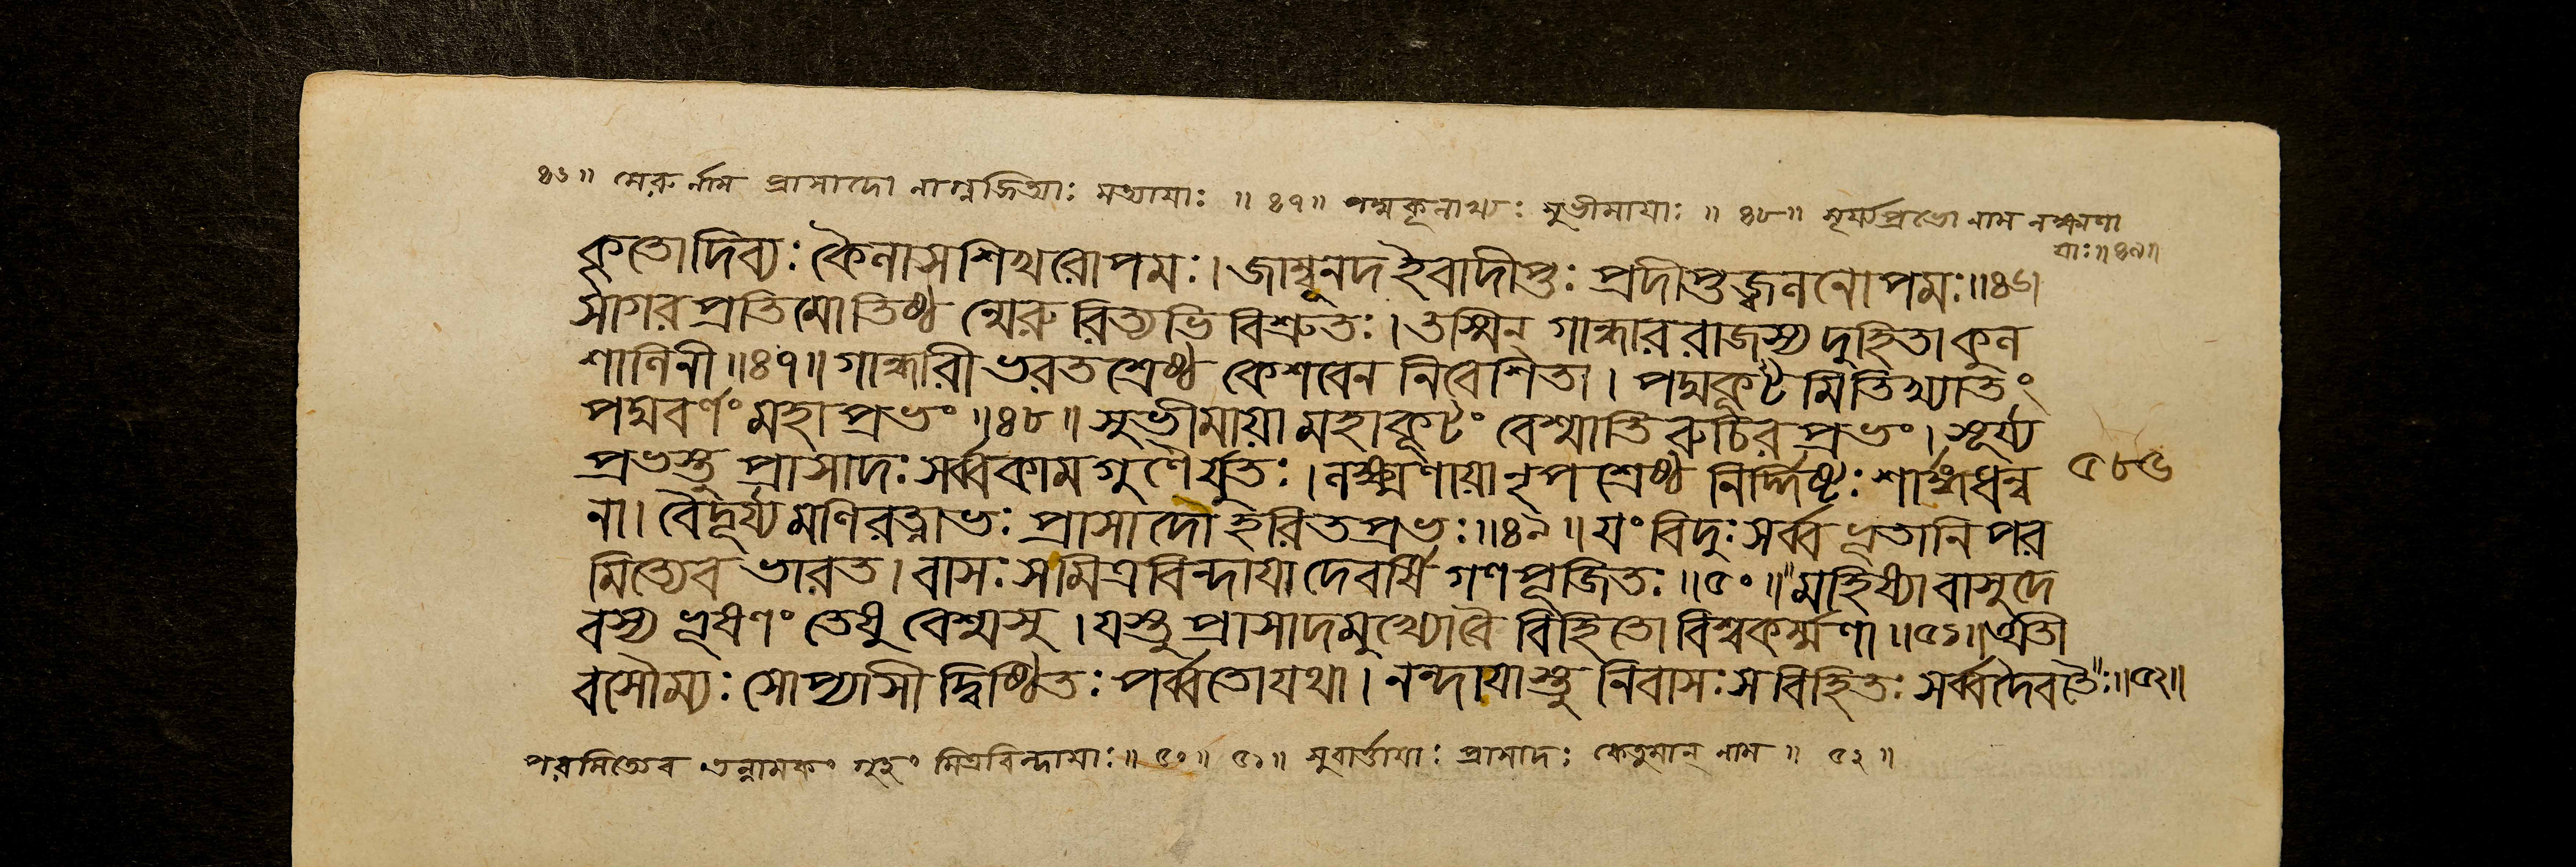 ৪৬॥ মেরুর্নাম প্রাসাদো নাগ্নজিত্যাঃ সত্যায়াঃ ॥ ৪৭॥ পদ্মকূলাখ্যঃ সুভীমায়াঃ ॥ ৪৮॥ সূর্য্যপ্রভো নাম লক্ষ্মণা
য়াঃ॥৪৯॥
কৃতোদিব্যঃ কৈলাসশিখরোপমঃ। জাম্বূনদইবাদীপ্তঃ প্রদীপ্তজ্বলনোপমঃ॥৪৬।
সাগরপ্রতিমোতিষ্ঠ ন্মেরুরিত্যভিবিশ্রুতঃ। তস্মিন্ গান্ধাররাজস্য দুহিতা কুল
শালিনী॥৪৭॥ গান্ধারী ভরতশ্রেষ্ঠ কেশবেন নিবেশিতা। পদ্মকূটমিতিখ্যাতং
পদ্মবর্ণং মহাপ্রভং॥৪৮॥ সুভীমায়া মহাকূটং বেশ্মাতিরুচিরপ্রভং। সূর্য্য
প্রভস্তু প্রাসাদঃ সর্ব্বকামগুণৈর্যুতঃ। লক্ষ্মণায়া নৃপশ্রেষ্ঠ নির্দ্দিষ্টঃ শার্ঙ্গধন্ব
না। বৈদূর্য্যমণিরত্নাভঃ প্রাসাদো হরিতপ্রভঃ॥৪৯॥ যং বিদুঃ সর্ব্বভূতানি পর
মিত্যেব ভারত। বাসঃ স মিত্রবিন্দায়া দেবর্ষিগণপূজিতঃ॥৫০॥ মহিষ্যা বাসুদে
বস্য ভূষণং তেষু বেশ্মসু। যস্তু প্রাসাদমুখ্যোবৈ বিহিতো বিশ্বকর্ম্মণা॥৫১॥ অতী
বসৌম্যঃ সোপ্যাসীদ্বিষ্ঠিতঃ পর্ব্বতোযথা। নন্দায়াস্তু নিবাসঃ স বিহিতঃ সর্ব্বদৈবতৈঃ॥৫২॥
পরমিত্যেব তন্নামকং গৃহং মিত্রবিন্দায়াঃ॥ ৫০॥ ৫১॥ সুবার্ত্তায়াঃ প্রাসাদঃ কেতুমান্ নাম ॥ ৫২ ॥